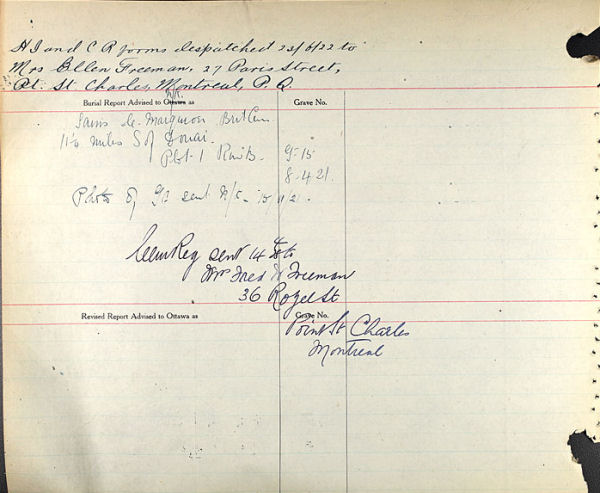 H I and C R forms despatched 22/6/22 to
Mrs Ellen Freeman, 27 Paris Street,
Pt. St Charles, Montreal, P. Q.
Burial Report Advised to Ottawa as
Grave No.
Sains le Marquion Brit Cem
11½ miles S of Douai.
Plot 1 Row B. G-15
8.4.21.
Photo of GS sent N/K 15/11/21.
Cem Reg sent to
Mr Fred W Freeman
36 Rozel St
Revised Report Advised to Ottawa as
Grave No.
Point St Charles
Montreal